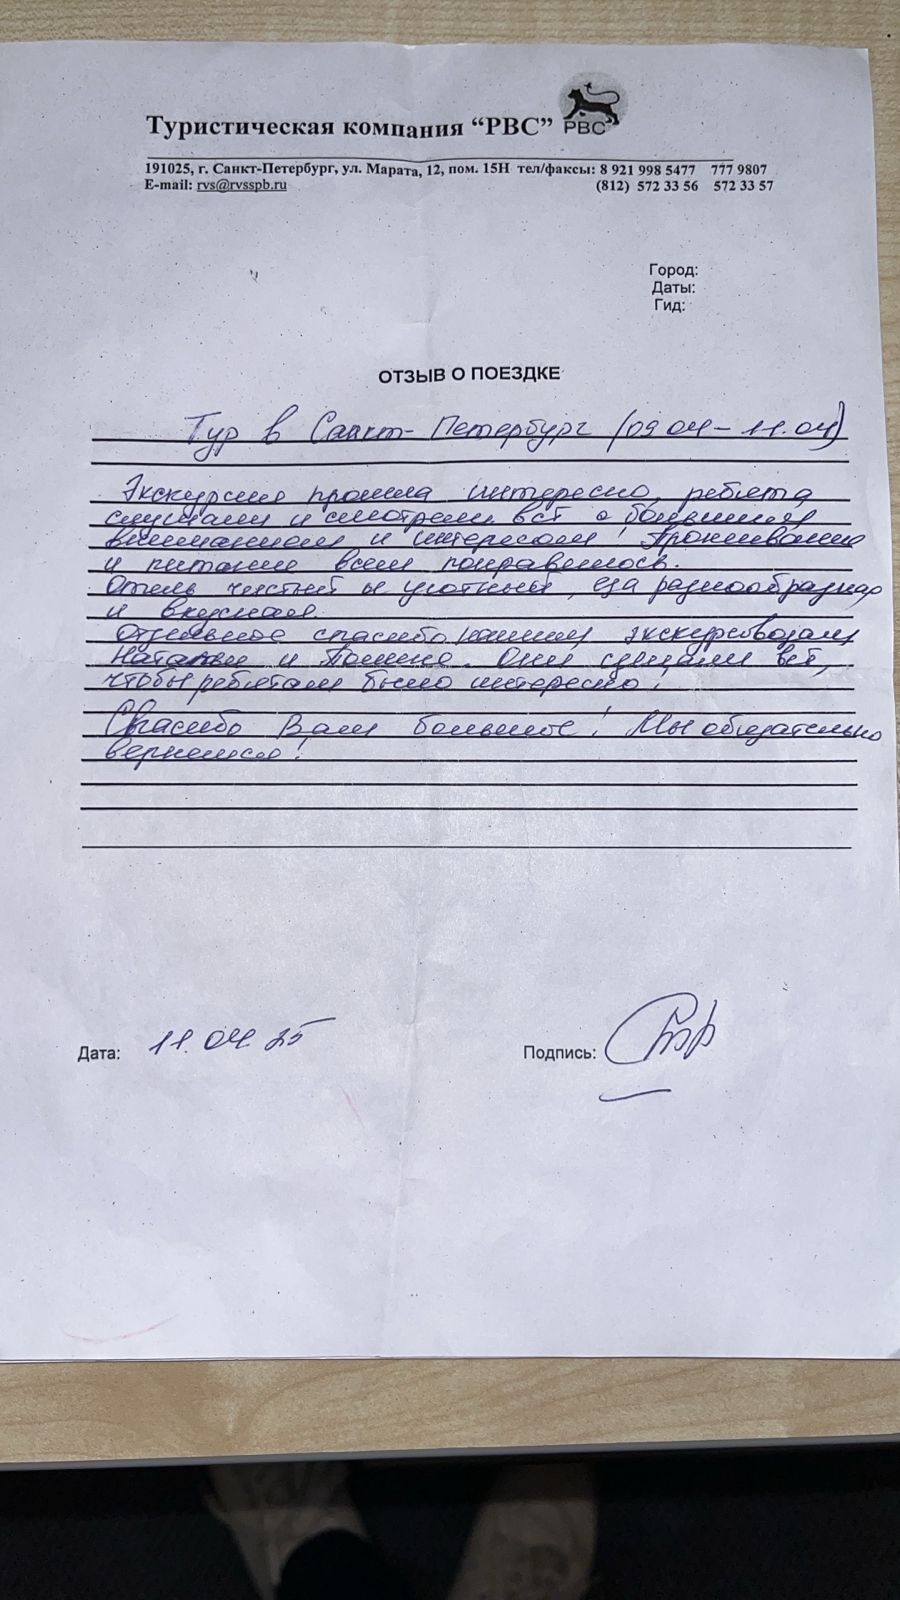 Туристическая компания “РВС”
РВС
191025, г. Санкт-Петербург, ул. Марата, 12, пом. 15Н тел/факсы: 8 921 998 5477 777 9807
E-mail: rvs@rvsspb.ru (812) 572 33 56 572 33 57
Город:
Даты:
Гид:
ОТЗЫВ О ПОЕЗДКЕ
Тур в Санкт-Петербург (09.04 – 11.04)
Экскурсия прошла интересно, ребята
слушали и смотрели всё с большим
вниманием и интересом! Проживание
и питание всем понравилось.
Отель чистый и уютный, еда разнообразная
и вкусная.
Отдельное спасибо нашим экскурсоводам
Наталии и Полине. Они сделали всё,
чтобы ребятам было интересно!
Спасибо Вам большое! Мы обязательно
вернемся!
Дата: 11.04.25
Подпись: